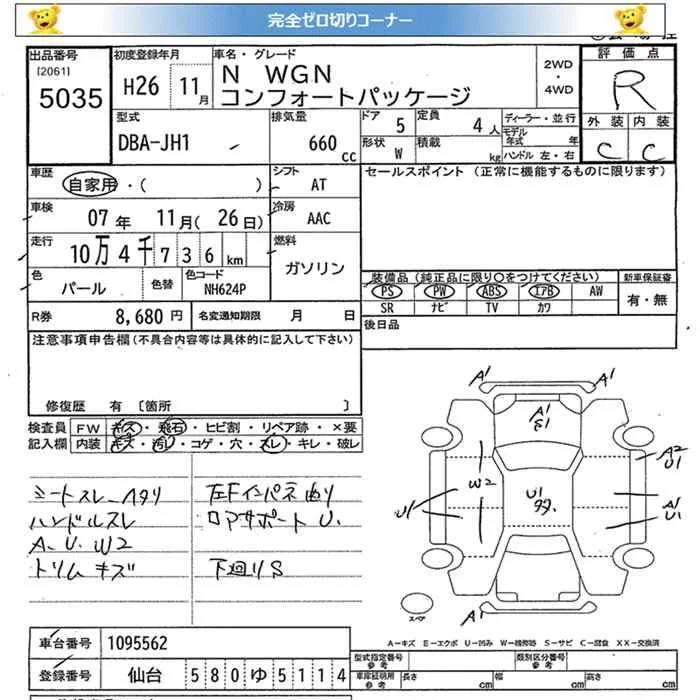 完全ゼロ切りコーナー
出品番号
[2061]
5035
初度登録年月
H26 11月
車名・グレード
N WGN
コンフォートパッケージ
2WD
・
4WD
評価点
R
外装 内装
C C
型式
DBA-JH1
排気量
660 cc
ドア 5
定員 4人
形状 W
積載 kg
ディーラー・並行
モデル年式 年
ハンドル 左・右
車歴
自家用・( )
シフト
AT
車検
07年 11月(26日)
冷房
AAC
走行
10万4千736km
燃料
ガソリン
色
パール
色替
色コード
NH624P
R券 8,680円
名変通知期限 月 日
セールスポイント(正常に機能するものに限ります)
装備品(純正品に限り○をつけてください)
新車保証書
PS PW ABS エアB AW
有・無
SR ナビ TV カワ
後日品
注意事項申告欄(不具合内容等は具体的に記入して下さい)
修復歴 有〔箇所 〕
検査員記入欄
FW キズ・飛石・ヒビ割・リペア跡・×要
内装 キズ・汚レ・コゲ・穴・スレ・キレ・破レ
シートスレ ヘタリ
ハンドルスレ
A. U. W2
トリムキズ
左Fインパネ曲り
ロアサポートU.
下廻りS
A1
A1
A1
E1
A2
U1
W2
U1
U1
多
A1
U1
A1
スペア
A-キズ E-エクボ U-凹み W-補修跡 S-サビ C-腐食 XX-交換済
車台番号 1095562
登録番号 仙台 580ゆ5114
型式指定番号
参考
類別区分番号
参考
車庫証明用
参考
長さ cm
幅 cm
高さ cm